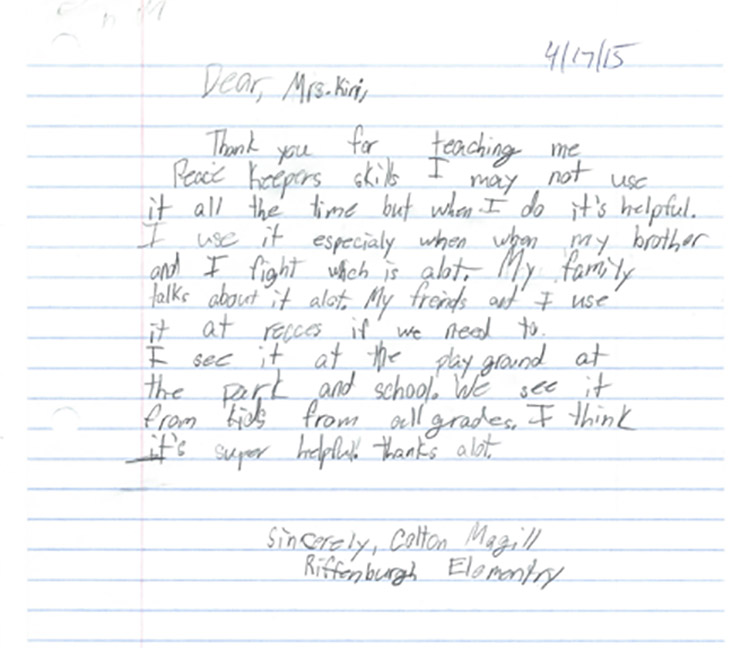 4/17/15
Dear, Mrs. Kiri,
Thank you for teaching me
Peace Keepers skills I may not use
it all the time but when I do it's helpful.
I use it especialy when when my brother
and I fight which is alot. My family
talks about it alot. My freinds and I use
it at recces if we need to.
I see it at the play ground at
the park and school. We see it
from kids from all grades. I think
it's super helpful! thanks alot.
Sincerely, Colton Magill
Riffenburgh Elementry